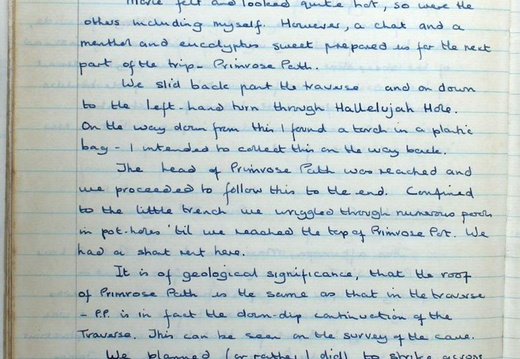 Marie felt and looked quite hot, so were the
others including myself. However, a chat and a
menthol and eucalyptus sweet prepared us for the next
part of the trip - Primrose Path.
We slid back part the traverse and on down
to the left-hand turn through Hallelujah Hole.
On the way down from this I found a torch in a plastic
bag - I intended to collect this on the way back.
The head of Primrose Path was reached and
we proceeded to follow this to the end. Confined
to the little trench we wriggled through numerous pools
in pot-holes 'til we reached the top of Primrose Pot. We
had a short rest here.
It is of geological significance, that the roof
of Primrose Path is the same as that in the traverse
- P.P. is in fact the down-dip continuation of the
Traverse. This can be seen on the survey of the cave.
We planned (or rather I did!) to strike across